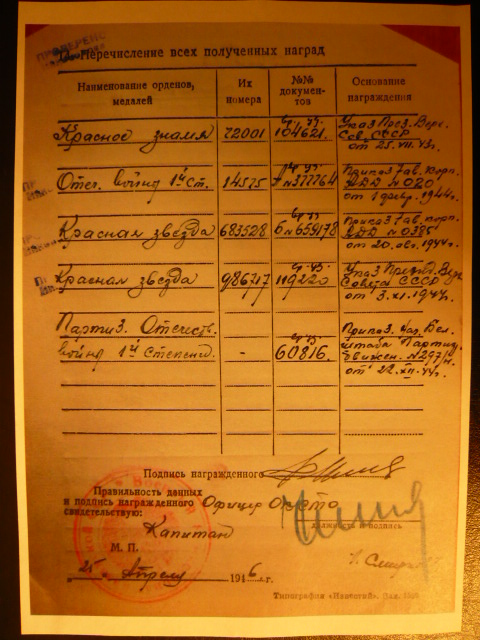 Перечисление всех полученных наград
Наименование орденов, медалей
Их номера
№№ документов
Основание награждения
Красное знамя 72001 104621. Указ През. Верх. Сов. СССР от 25. VII. 43г.
Отеч. войны 1й ст. 14575 №377764 Приказ 7 ав. корп. АДД №020 от 1 февр. 1944г.
Красная звезда 683528 №659178 Приказ 7 ав. корп. АДД от 20. 1944г.
Красная звезда 119220 Указ Презид. Вер. Совета СССР от 3. XI. 1944г.
Партиз. Отечеств.
войны 1й степени. - 60816. Приказ Бел. штаба Партиз. движен. от 22. XII. 44г.
Подпись награжденного
Правильность данных
и подпись награжденного
свидетельствую:
Офицер
должность и подпись
Капитан
М. П.
"25" Апрель 1946 г.
Типография